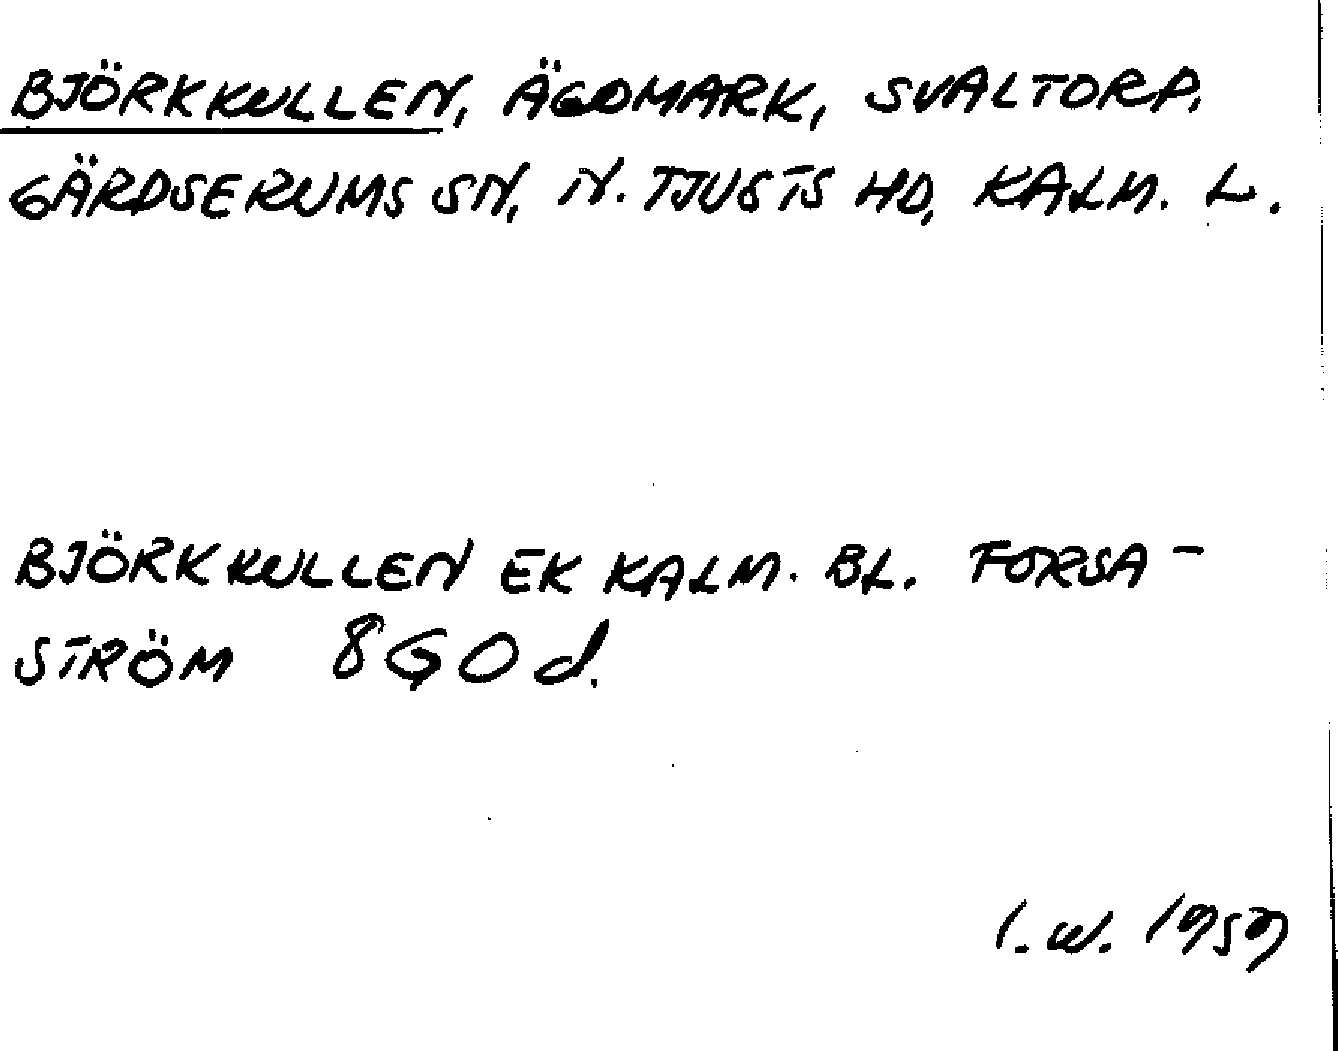 BJÖRKKULLEN, ÄGOMARK, SVALTORP,
GÄRDSERUMS SN, N. TJUSTS HD, KALM. L.
BJÖRKKULLEN EK KALM. BL. FORSA-
STRÖM 8 G O d.
I. W. 1959